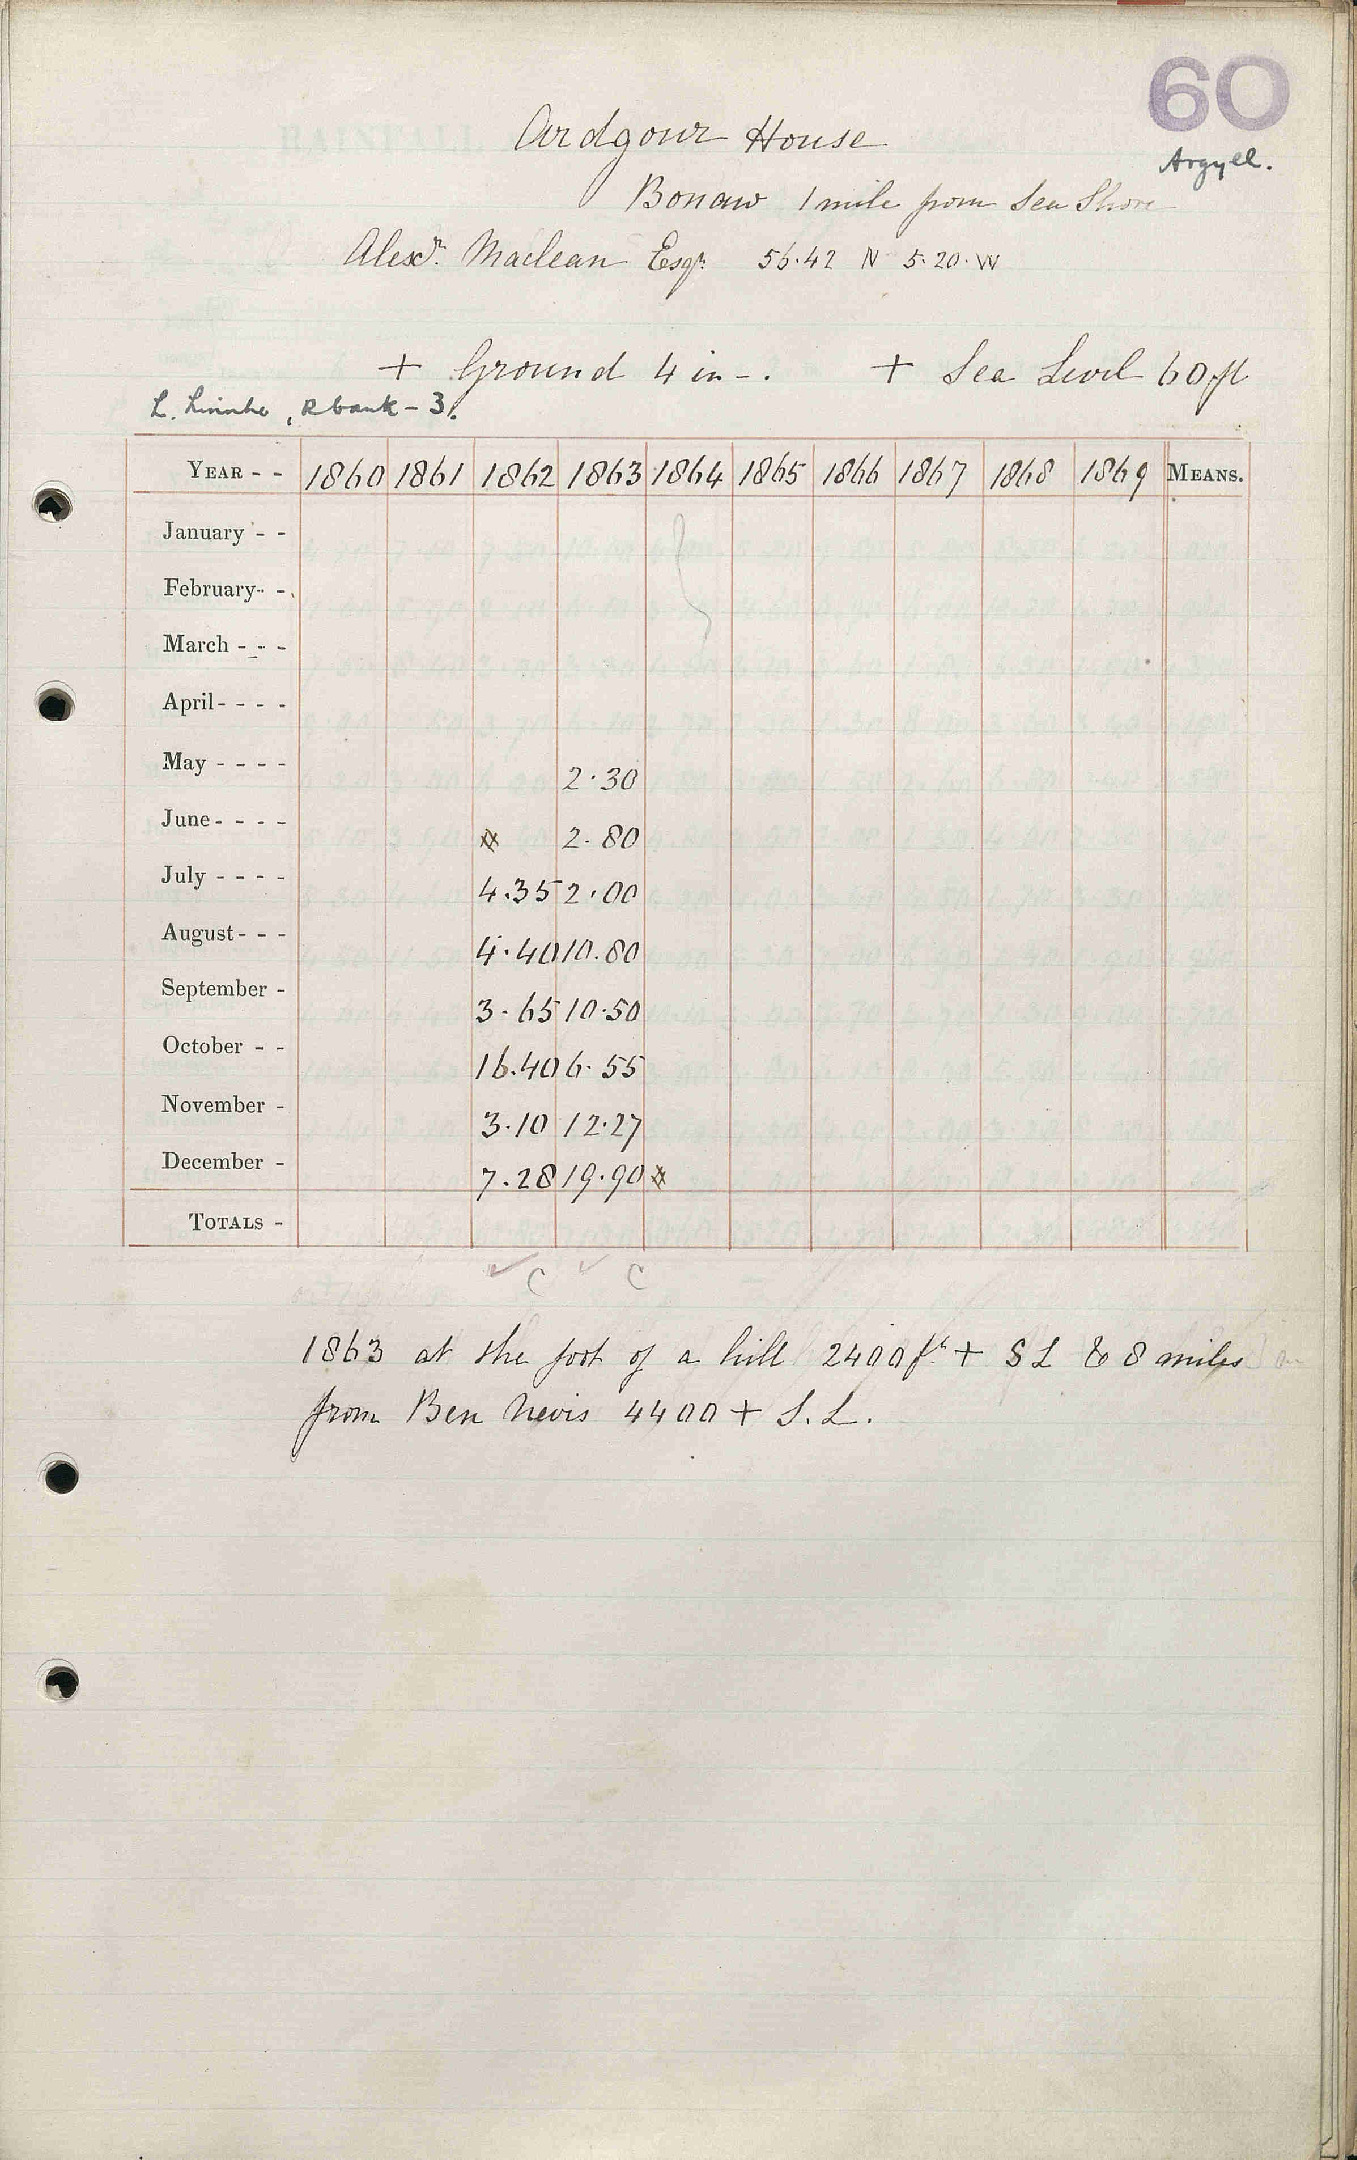 60
Argyll.
Ardgour House
Bonaw 1 mile from Sea Shore
Alexr. Maclean Esqr. 56.42 N 5.20.W
+ Ground 4 in -. + Sea Level 60 ft
L. Linnhe, R bank - 3.
YEAR - - 1860 1861 1862 1863 1864 1865 1866 1867 1868 1869 MEANS.
January - -
February - -
March - - -
April - - - -
May - - - - 2.30
June - - - - 2.80
July - - - - 4.35 2.00
August - - - 4.40 10.80
September - 3.65 10.50
October - - 16.40 6.55
November - 3.10 12.27
December - 7.28 19.90
TOTALS -
C C
1863 at the foot of a hill 2400 ft + S L & 8 miles
from Ben Nevis 4400 + S.L.